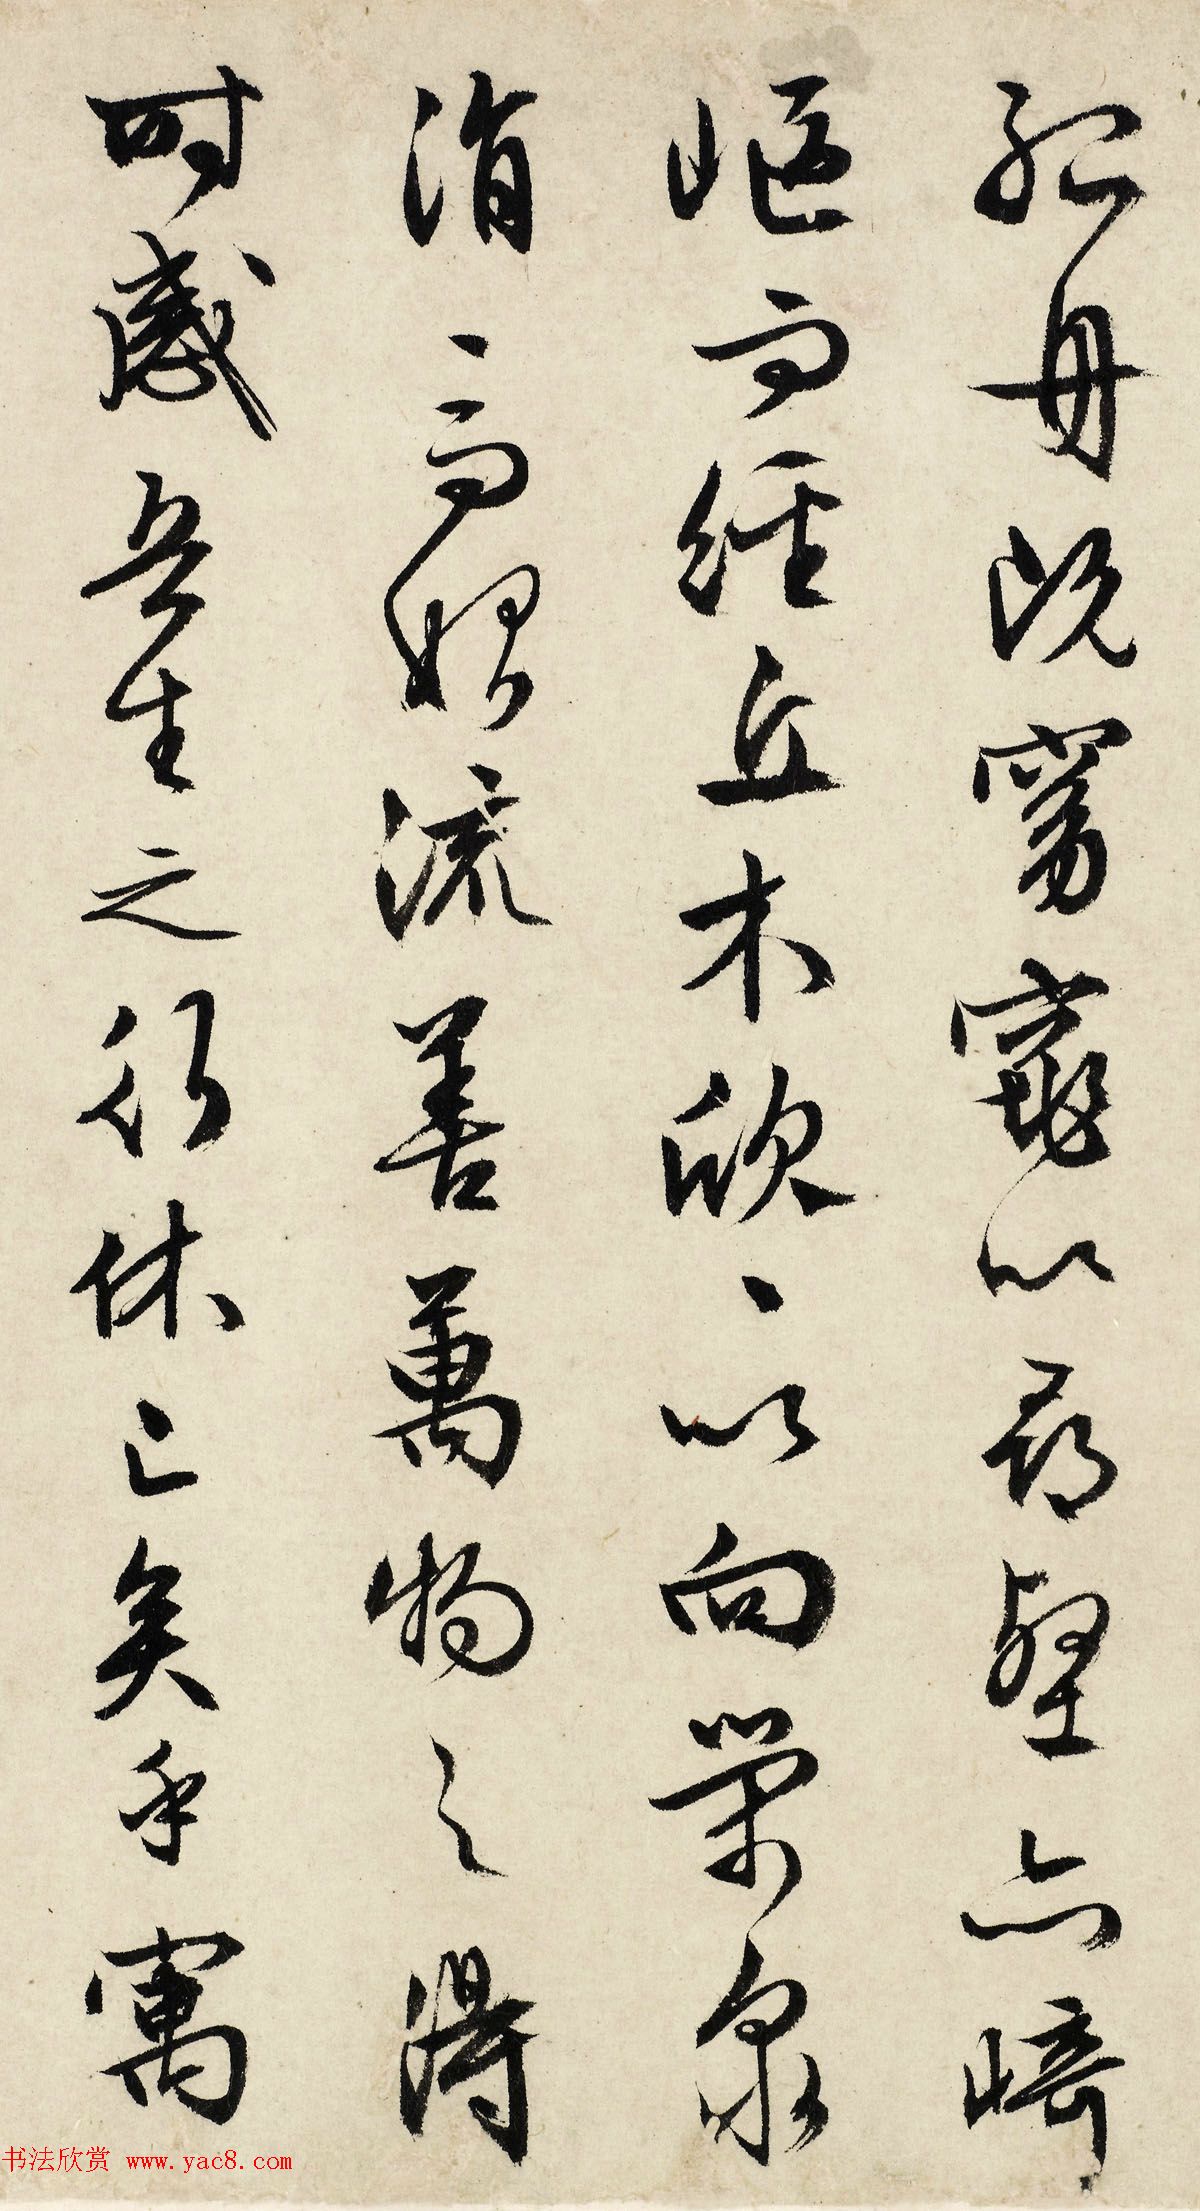 孤舟既窈窕以尋壑亦崎
嶇而經丘木欣々以向榮泉
涓々而始流善萬物之得
時感吾生之行休已矣乎寓
书法欣赏 www.yac8.com